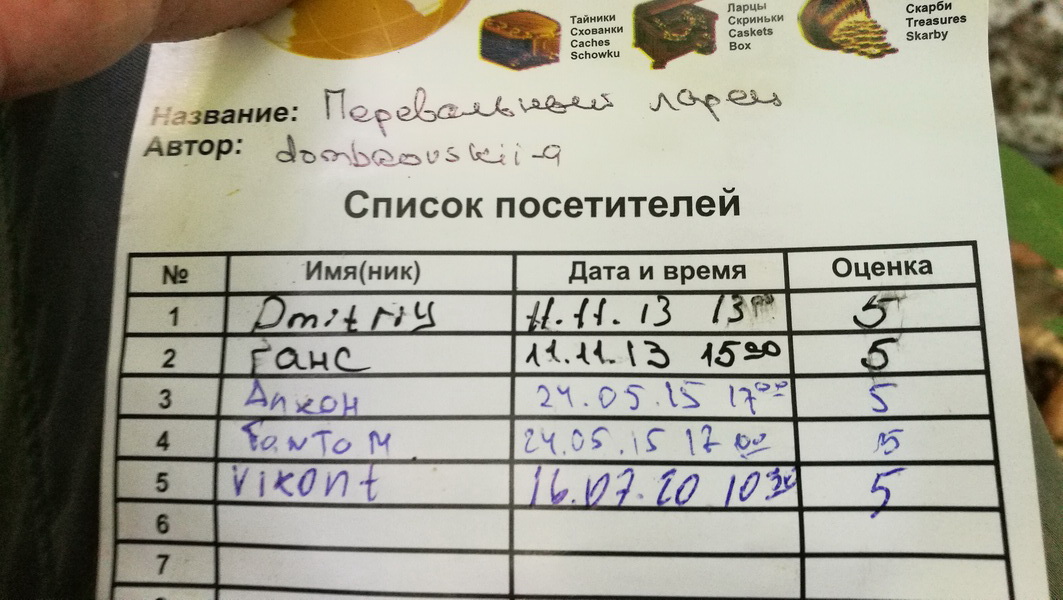 Тайники
Схованки
Caches
Schowku
Ларцы
Скриньки
Caskets
Box
Скарби
Treasures
Skarby
Название: Перевальный ларец
Автор: dombrovskii-a
Список посетителей
№ Имя(ник) Дата и время Оценка
1 Dmitriy 11.11.13 13 00 5
2 Ганс 11.11.13 15 00 5
3 Алкон 24.05.15 17 00 5
4 FanToM 24.05.15 17 00 5
5 Vikont 16.07.20 10 30 5
6
7